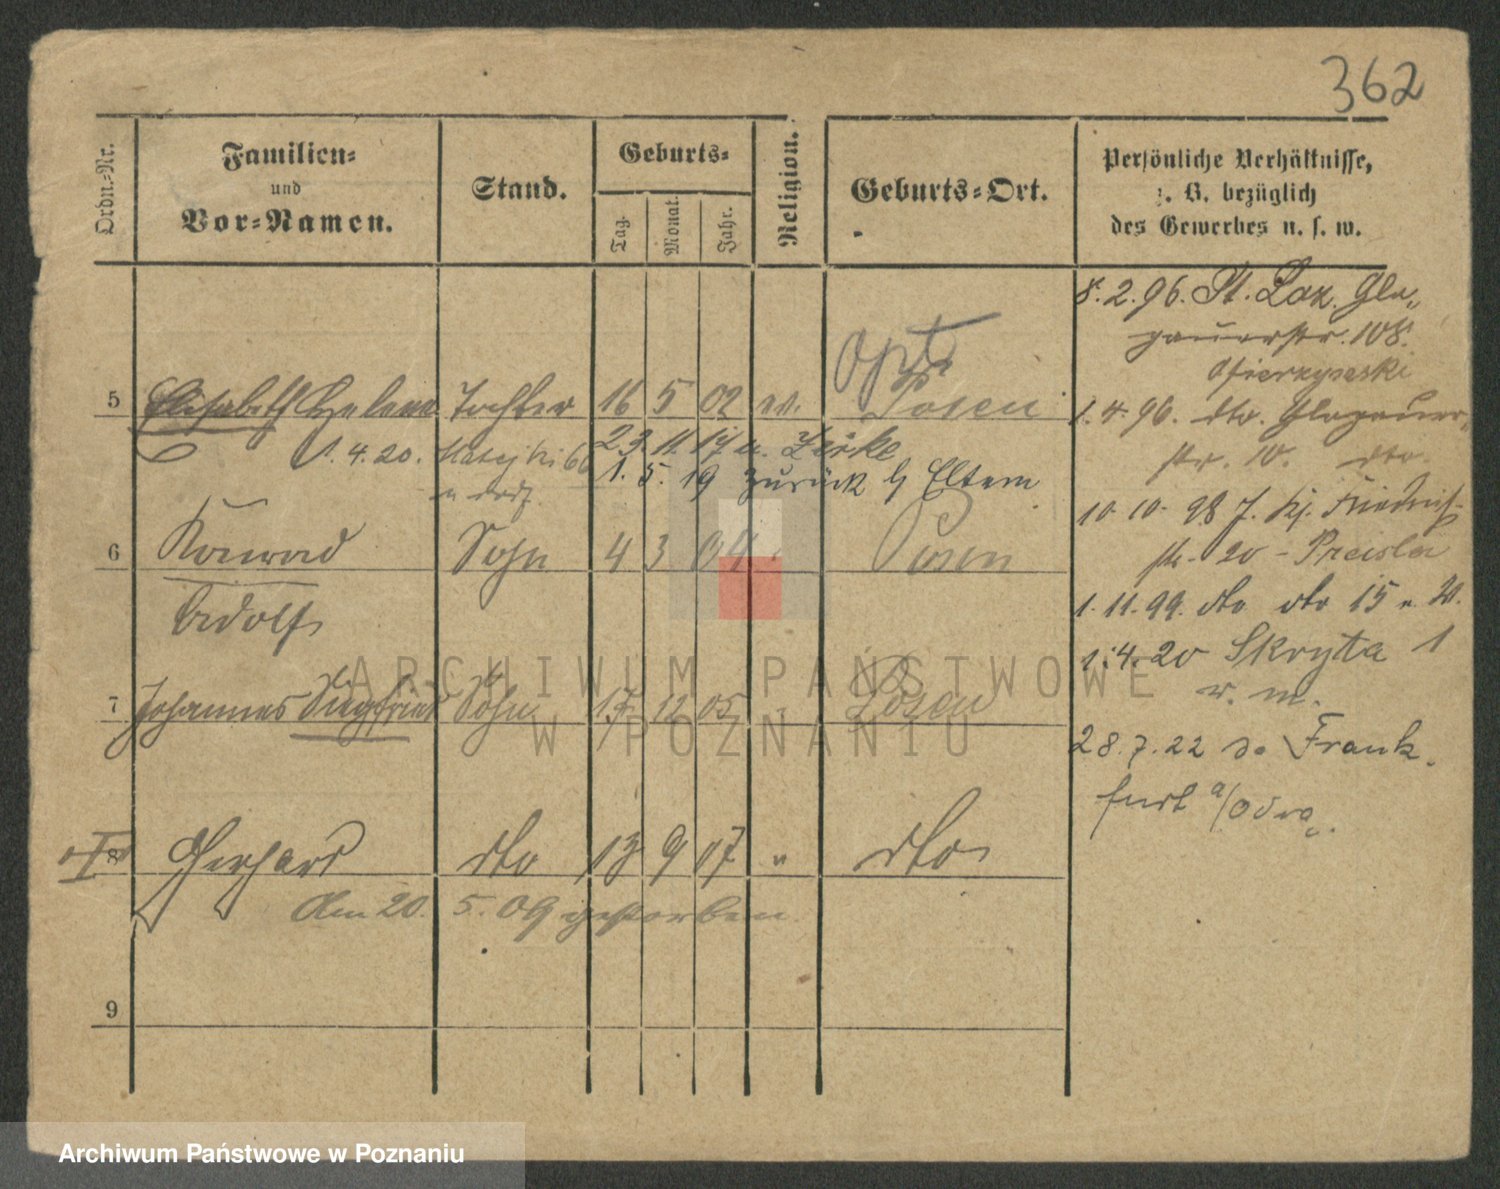 362
Ordn.-Nr.
Familien-
und
Vor-Namen.
Stand.
Geburts-
Tag.
Monat.
Jahr.
Religion.
Geburts-Ort.
Persönliche Verhältnisse,
z. B. bezüglich
des Gewerbes u. s. w.
Opt.
5 Elisabeth Helene Tochter 16 5 02 ev. Posen
1.4.20. Matejki 60 23. 11. 17 n. Zirke
1. 5. 19 zurück Eltern
6 Konrad Sohn 4 3 04 " Posen
Adolf
7 Johannes Siegfried Sohn 17 12 05 " Posen
8 Gerhard dto 13 9 07 " dto
Am 20. 5. 09 gestorben.
9
8.2.96. St. Laz. Glo-
gauerstr. 108.
1.4.96. dto. Glogauer-
str. 10. dto.
10 10. 98 Friedrich-
str. 20 - Preisler
1.11.99. dto dto 15
1.4.20 Skryta 1
28.7.22 Frank-
furt a/Oder.
ARCHIWUM PAŃSTWOWE
W POZNANIU
Archiwum Państwowe w Poznaniu